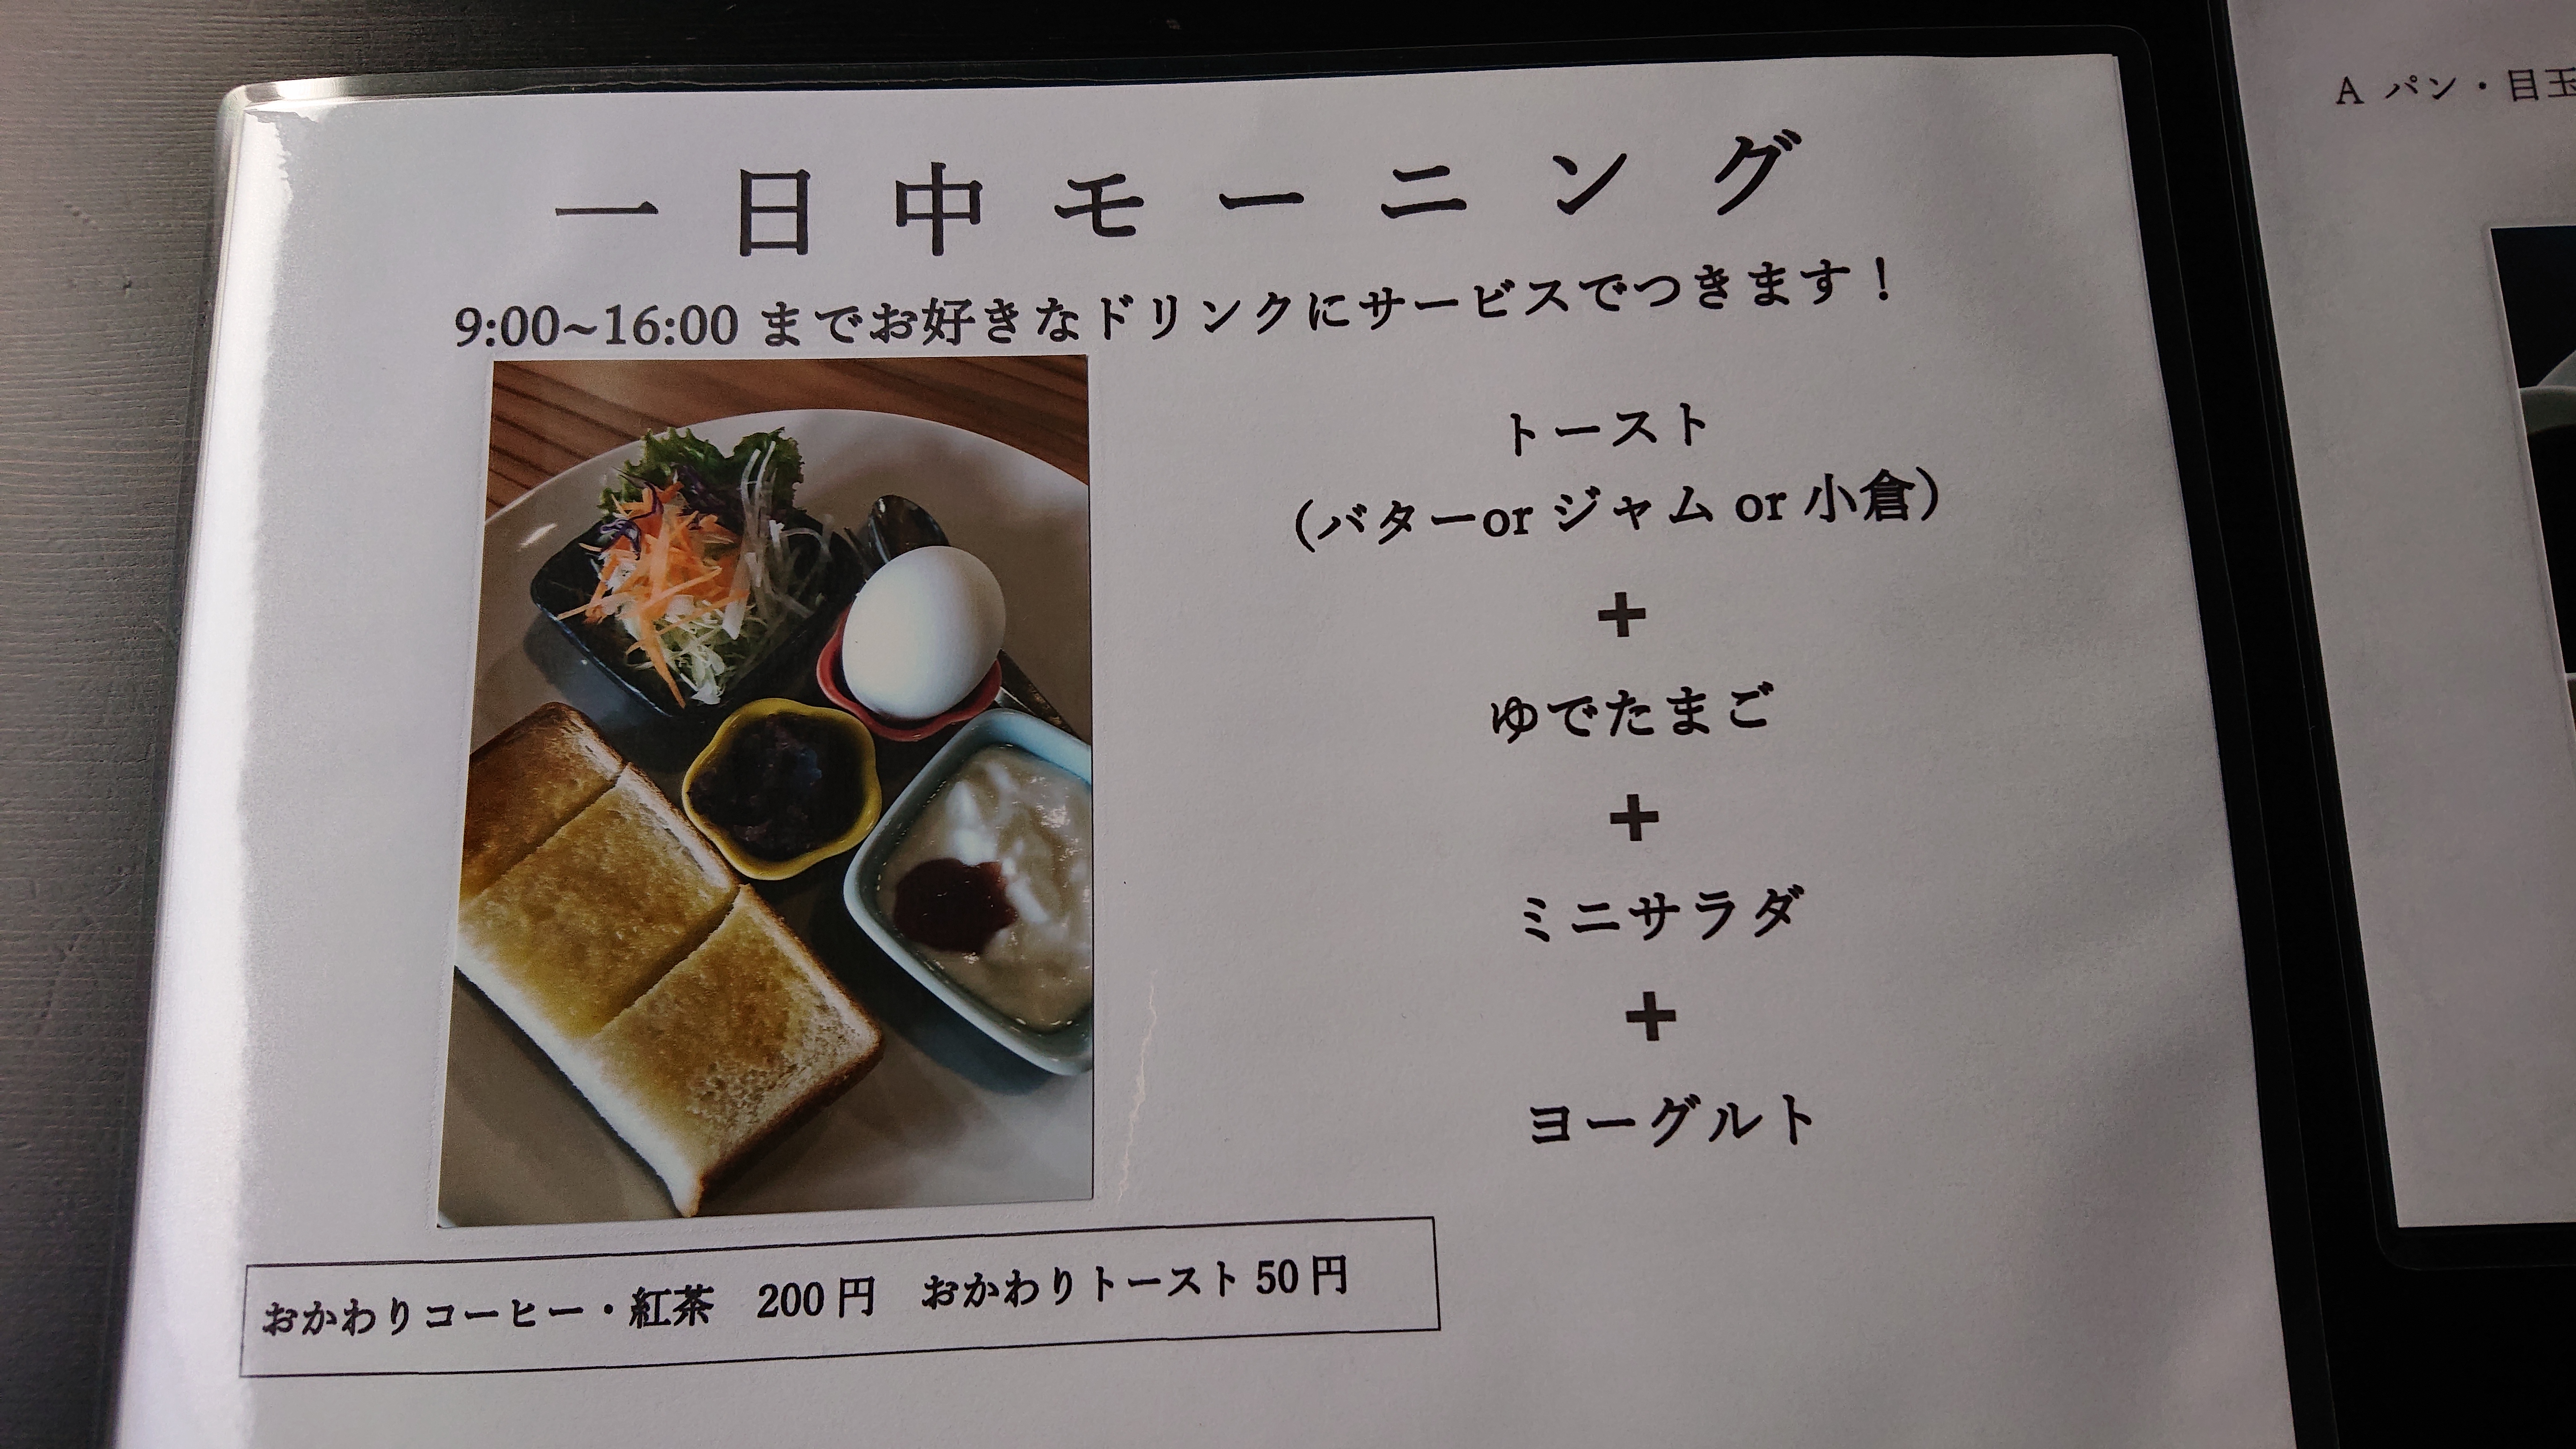 一日中モーニング
9:00~16:00 までお好きなドリンクにサービスでつきます！
トースト
（バターor ジャム or 小倉）
+
ゆでたまご
+
ミニサラダ
+
ヨーグルト
おかわりコーヒー・紅茶　200 円　おかわりトースト 50 円
A パン・目玉